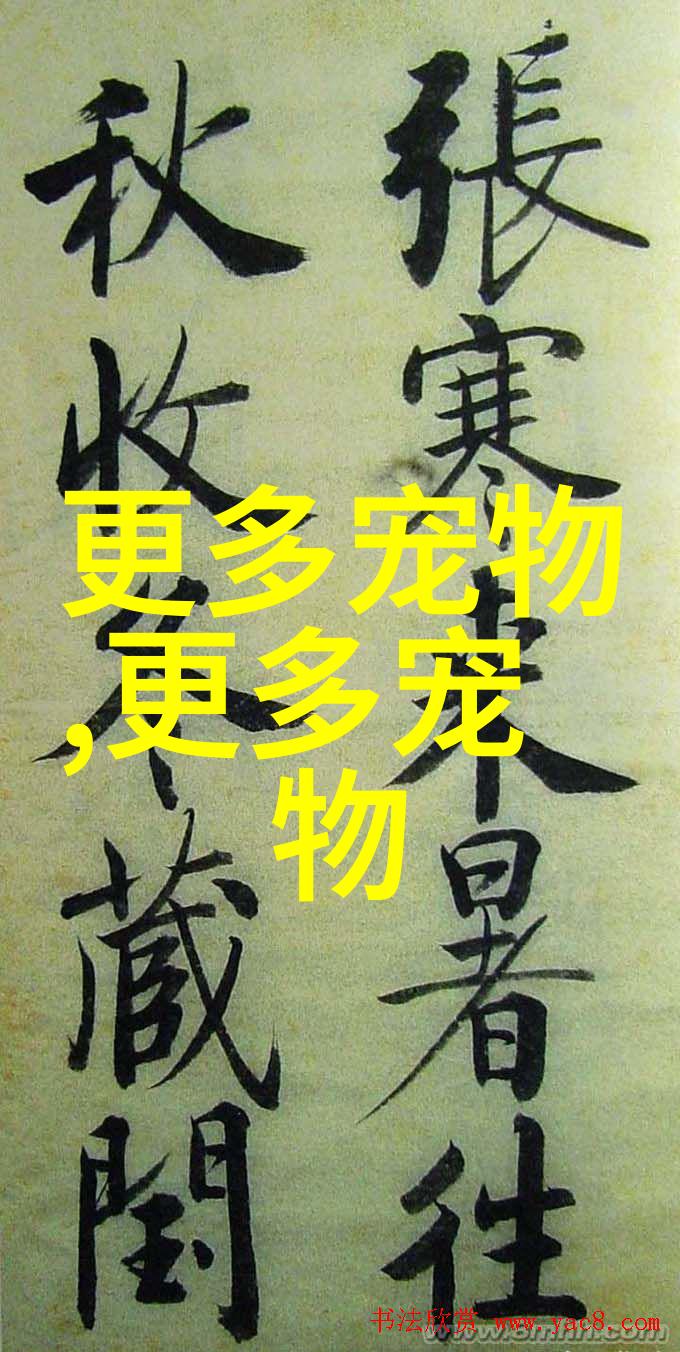 張寒來暑往
秋收冬藏閏
更多宠物
,更多宠
物
书法欣赏 www.yac8.com